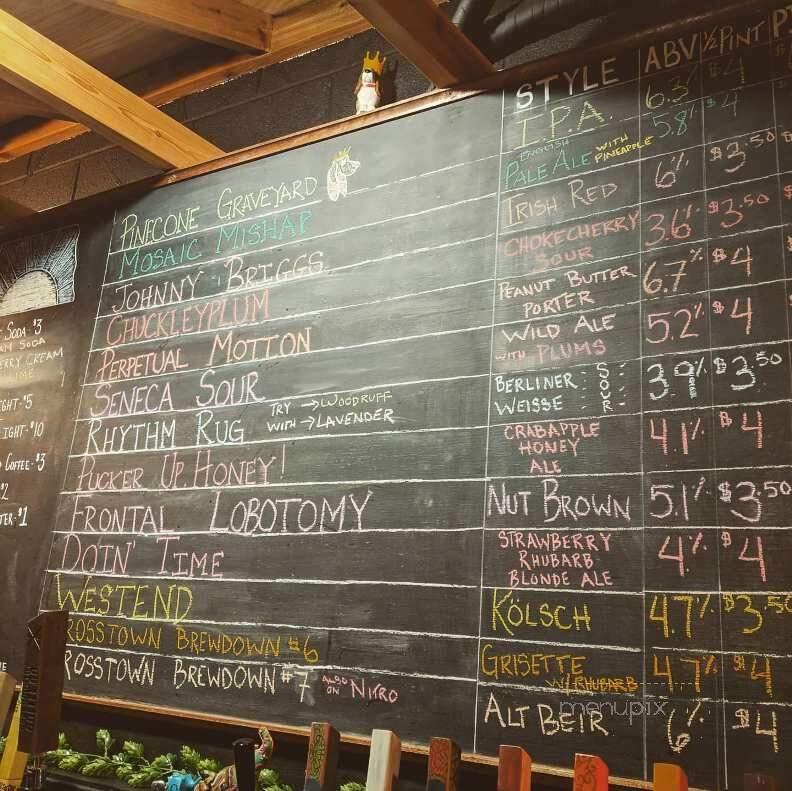 STYLE ABV ½ PINT
PINECONE GRAVEYARD I.P.A. 6.3% $4
MOSAIC MISHAP ENGLISH PALE ALE WITH PINEAPPLE 5.8% $4
JOHNNY BRIGGS IRISH RED 6% $3.50
CHUCKLEYPLUM CHOKECHERRY SOUR 3.6% $3.50
PERPETUAL MOTION PEANUT BUTTER PORTER 6.7% $4
SENECA SOUR WILD ALE WITH PLUMS 5.2% $4
RHYTHM RUG TRY WITH → WOODRUFF → LAVENDER BERLINER WEISSE SOUR 3.9% $3.50
PUCKER UP, HONEY! CRABAPPLE HONEY ALE 4.1% $4
FRONTAL LOBOTOMY NUT BROWN 5.1% $3.50
DOIN' TIME STRAWBERRY RHUBARB BLONDE ALE 4% $4
WESTEND KÖLSCH 4.7% $3.50
ROSSTOWN BREWDOWN #6 GRISETTE W/RHUBARB 4.7% $4
ROSSTOWN BREWDOWN #7 ALSO ON NITRO ALT BEIR 6% $4
SODA $3
SODA
CREAM
COFFEE $3
menupix